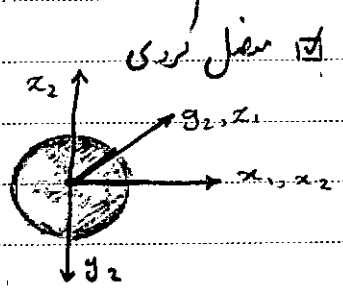 ☑ مفصل کروی
z₂
y₂, z₁
x₁, x₂
y₂